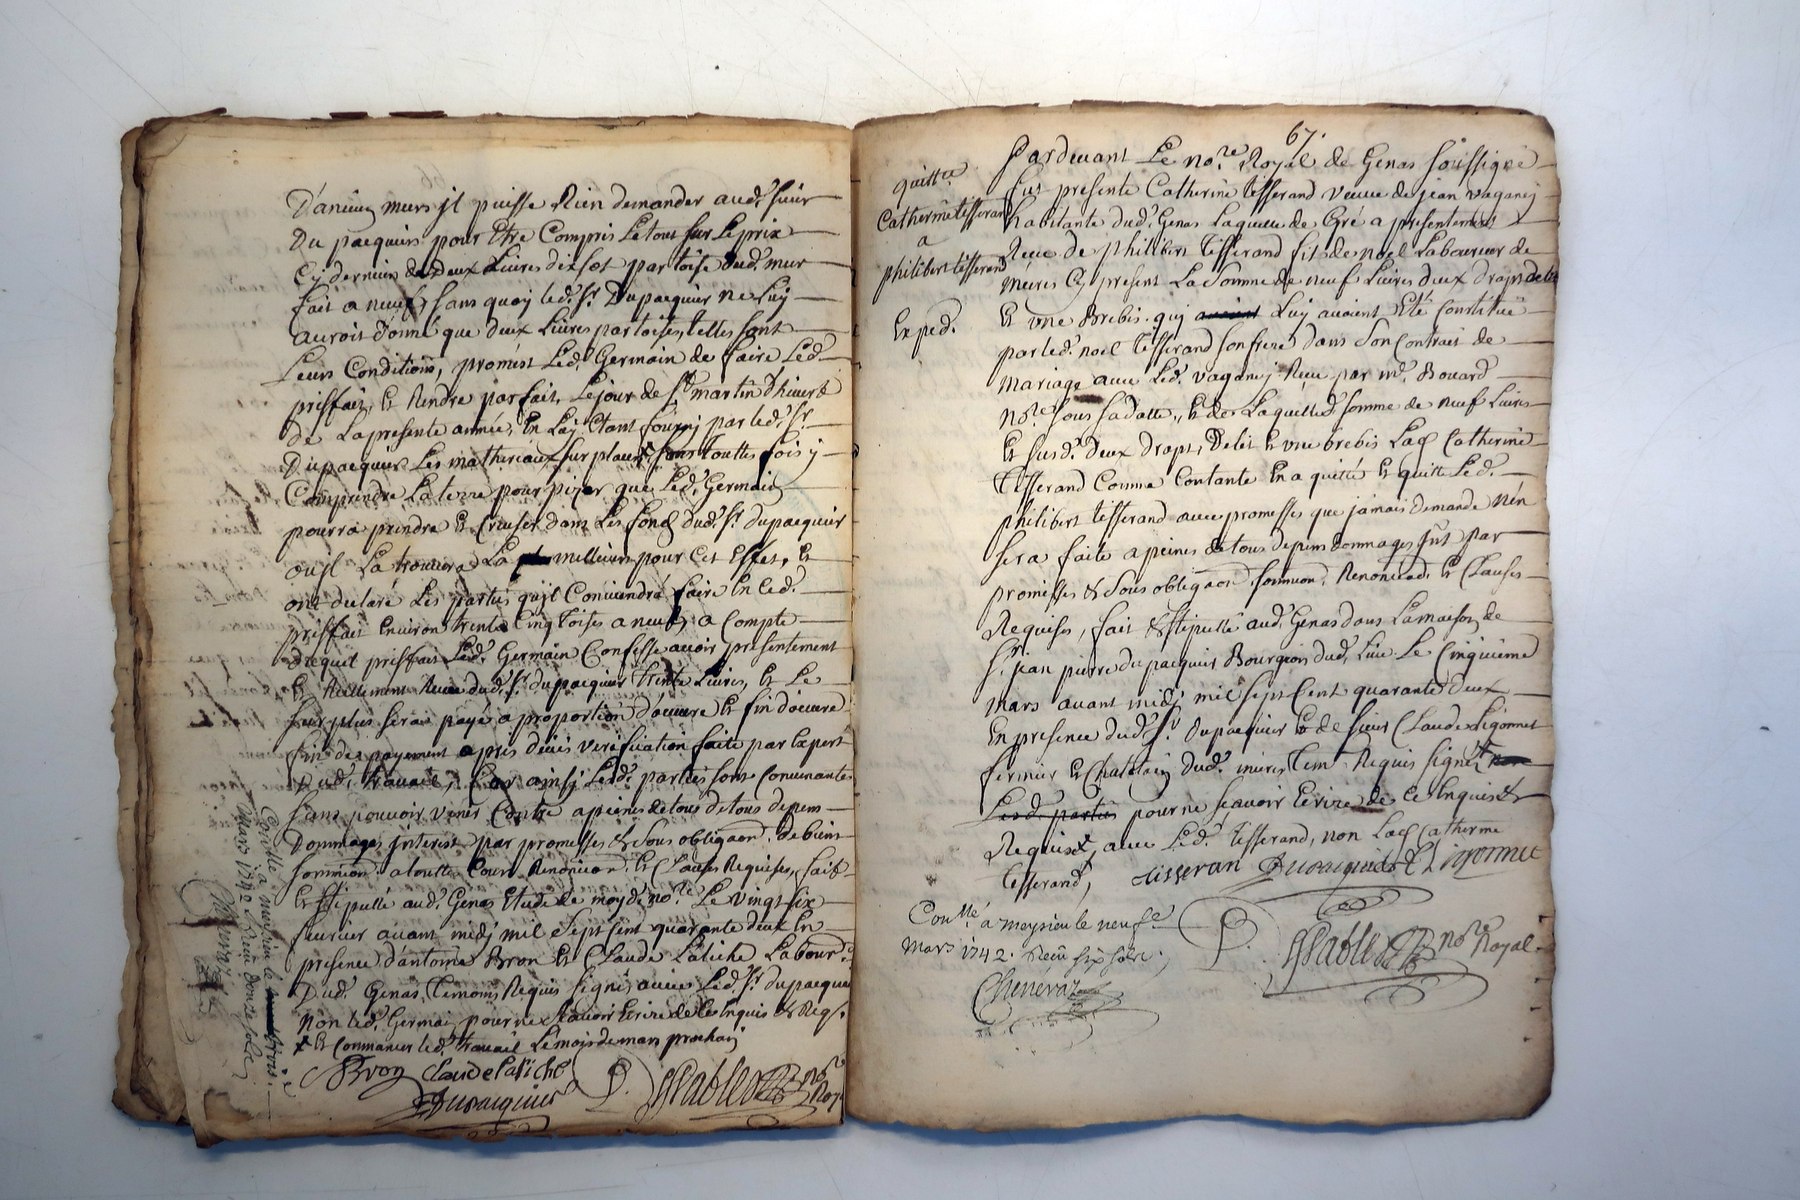 D'aucuns murs jl puisse Rien demander aud.t sieur
Du pacquier pour Etre Compris Le tout sur Le prix
Cy dernier de deux Livres dix sot par toise dud.t mur
fait a neuf, sans quoy led.t S.r Dupacquier ne luy
auroit donné que deux Livres par toises, telles sont
Leurs Conditions, promest Led.t Germain de faire Led.
prisfait, Et Rendre parfait, Le jour de S.t martin D'hivert
de La presente année, En Luy Etant fourny par led.t S.r
Dupacquier Les matheriaux sur place, sans touttes fois y
Comprendre La terre pour pizer que Led.t Germain
pourra prendre Et Creuser dans Les fond dud.t S.r dupacquier
ou jl La trouvera La meilleure pour Cet Effet, Et
ont declaré Les parties qu'jl Conviendra faire En led.
prisfait Environ trente Cinq toises a neuf, a Compte
duquel prisfait Led.t Germain Confesse avoir presentement
Et Réellement Receu dud.t S.r dupacquier trente Livres, Et Le
surplus sera payé a proportion d'oeuvre Et fin d'oeuvre
fin de payement apres due verification faite par Expert
Dud.t travail, Car ainsy Lesd.t parties sont Convenantes
sans pouvoir venir Contre a peines de tous de tous depens
Dommages jnterest par promesses & sous obligaon. de biens
soumission a toutte Cour Renoncion. Et Clauses Requises, fait
Et Stipullé aud.t Genas Etude de moyd.t no.re Le vingt six
fevrier avant midy mil sept cent quarante deux En
presence d'antoine Bron Et Claude Latiche Labour.
Dud.t Genas, temoins Requis signés avec Led.t S.r dupacquier
non led.t Germain pour ne scavoir Ecrire de Ce Enquis & Req.s
& Commancer led.t travail Le mois de mars prochain
Bron Claude Latiche
Dupacquier P. no.re Roy.
Con.llé a meyzieu le trois
mars 1742 Receu douze sols
Chenevaz
67.
quittce
Catherine tisserand
a
philibert tisserand
Exped.
Pardevant Le no.re Royal de Genas soussigné
fut presente Catherine tisserand veuve de jean vaganey
habitante dud.t Genas Laquelle de Gré a presentement
Receu de philibert tisserand fils de noel Laboureur de
mures Cy present La somme de neuf Livres deux draps de lit
Et une Brebis quy Luy avoient Eté Constitué
par led.t noel tisserand son frere dans Son Contrait de
mariage avec Led.t vaganey Receu par m.e Bouard
no.re sous sa datte, Et de Laquelled. somme de neuf Livres
Et susd.t deux draps, De lit Et une brebis Lad. Catherine
tisserand Comme Contante En a quitté Et quitte Led.
philibert tisserand avec promesses que jamais demande n'en
sera faite a peines de tous depens dommages jnt par
promesses & sous obligaon. soumion. Renonciaon. Et Clauses
Requises, fait & stipullé aud.t Genas dans La maison de
S.r jean pierre dupacquier Bourgeois dud.t Lieu Le Cinquieme
mars avant midy mil sept Cent quarante deux
En presence dud.t S.r Dupacquier Et de sieur Claude Ligonnet
fermier Et Chatelain dud.t mures tem. Requis signés
Lesd.t parties pour ne scavoir Ecrire de Ce Enquis &
Requist, avec Led.t tisserand, non Lad. Catherine
tisserand, tisseran Dupacquier C Ligonnet
Con.llé a meysieu le neuf.e
mars 1742. Receu six sols.
Chenevaz
P. no.re Royal